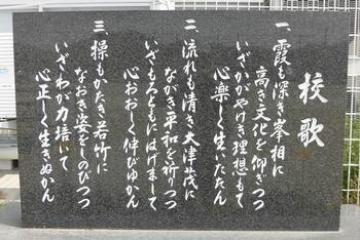 校歌
一、霞も深き峯相に
高き文化を仰ぎつつ
いざかがやけき理想もて
心楽しく生いたたん
二、流れも清き大津茂に
ながき平和を祈りつつ
いざもろともにはげまして
心おおしく伸びゆかん
三、操もかたき若竹に
なおき姿をしのびつつ
いざわが力培いて
心正しく生きぬかん